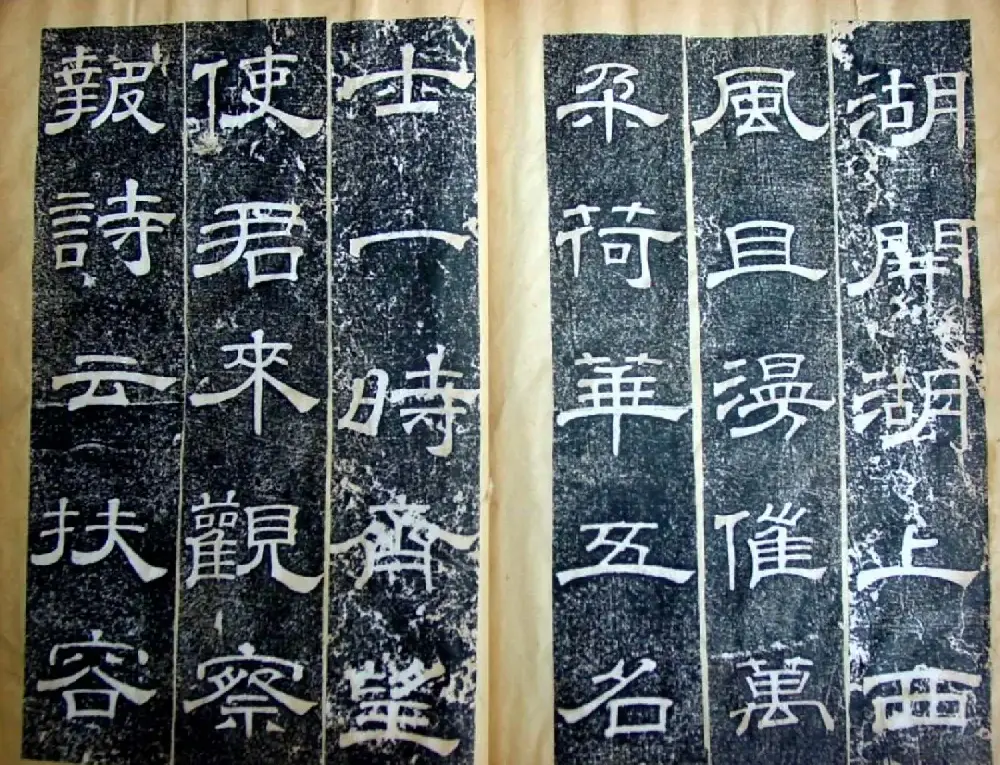 湖開湖上西
風且漫催萬
朶荷華五名
士一時齊望
使君來觀察
報詩云扶容